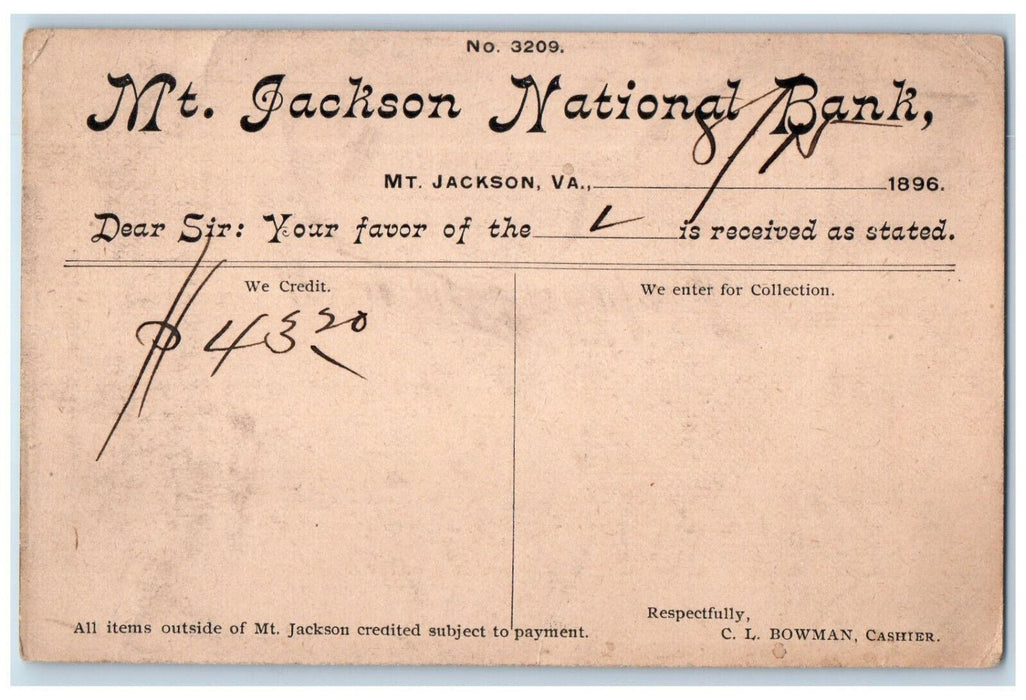 No. 3209.
Mt. Jackson National Bank,
MT. JACKSON, VA., 1896.
Dear Sir: Your favor of the is received as stated.
We Credit.
We enter for Collection.
$ 43 20
All items outside of Mt. Jackson credited subject to payment.
Respectfully,
C. L. BOWMAN, CASHIER.